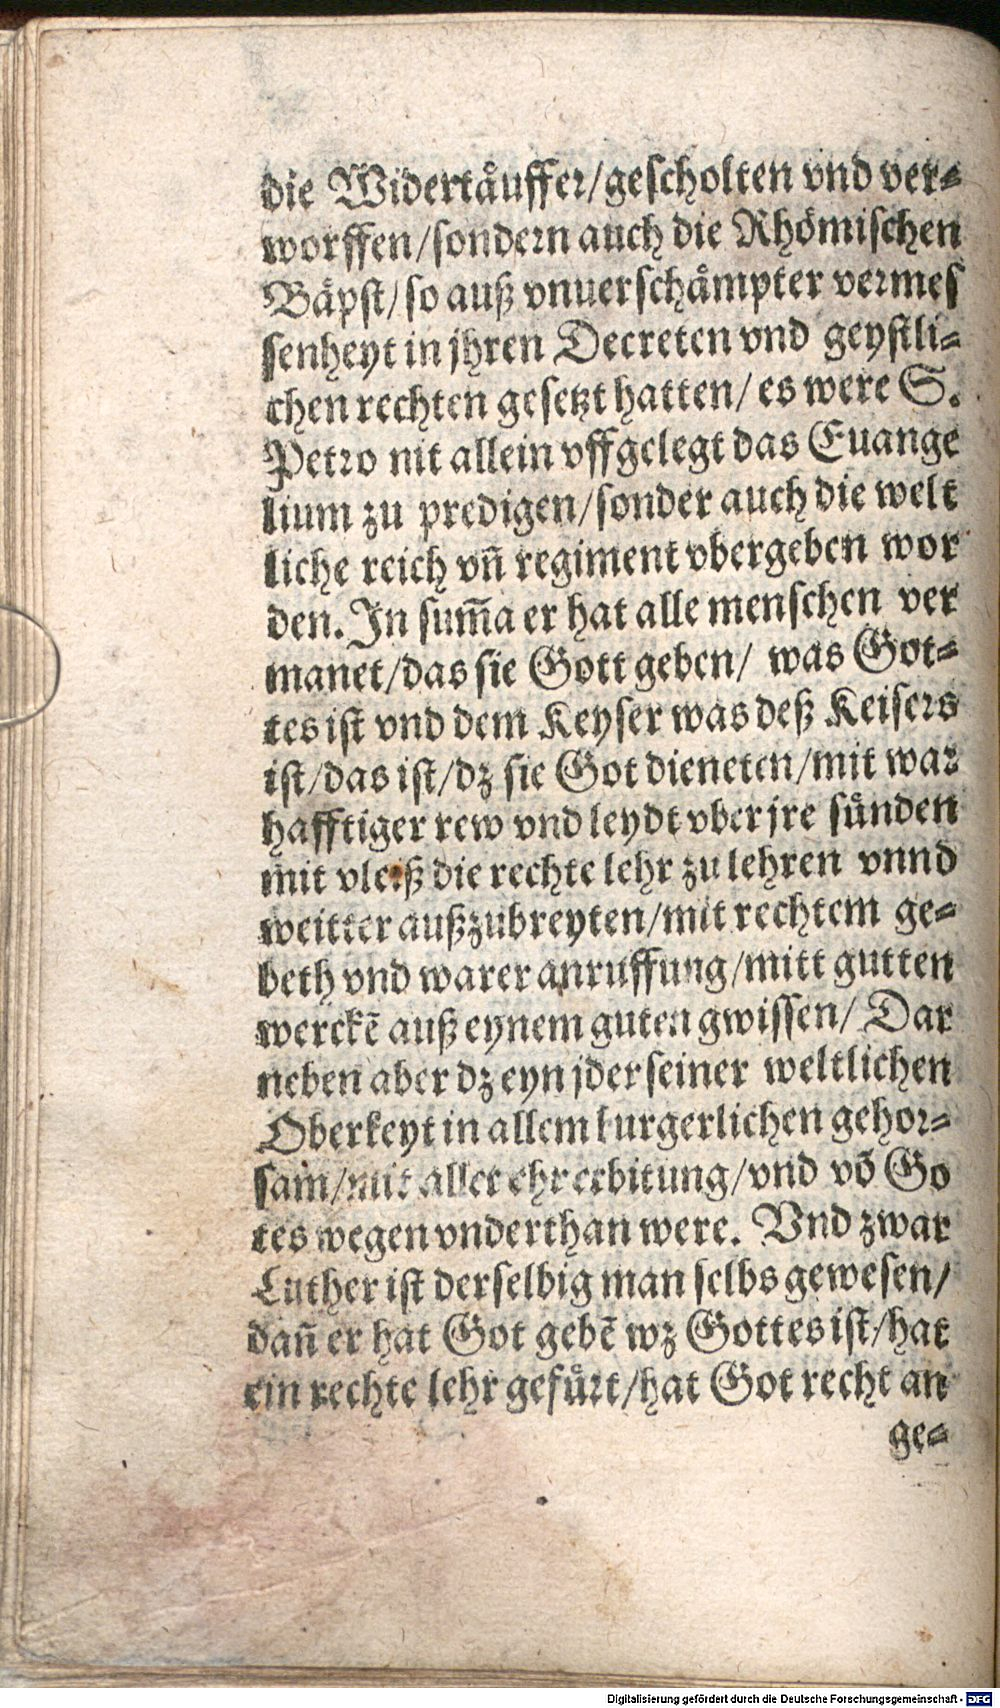 die Widertåuffer/gescholten vnd ver-
worffen/sondern auch die Rhömischen
Båpst/so auß vnuerschåmpter vermes
senheyt in jhren Decreten vnd geystli-
chen rechten gesetzt hatten/ es were S.
Petro nit allein vffgelegt das Euange
lium zu predigen/sonder auch die welt
liche reich vñ regiment vbergeben wor
den. In sum̃a er hat alle menschen ver
manet/das sie Gott geben/ was Got-
tes ist vnd dem Keyser was deß Keisers
ist/das ist/dz sie Got dieneten/mit war
hafftiger rew vnd leydt vber jre sünden
mit vleiß die rechte lehr zu lehren vnnd
weitter außzubreyten/mit rechtem ge-
beth vnd warer anruffung/mitt gutten
werckẽ auß eynem guten gwissen/ Dar
neben aber dz eyn jder seiner weltlichen
Oberkeyt in allem burgerlichen gehor-
sam/mit aller ehr erbitung/vnd võ Go
tes wegen vnderthan were. Vnd zwar
Luther ist derselbig man selbs gewesen/
dañ er hat Got gebẽ wz Gottes ist/hat
ein rechte lehr gefürt/hat Got recht an
ge-
Digitalisierung gefördert durch die Deutsche Forschungsgemeinschaft - DFG